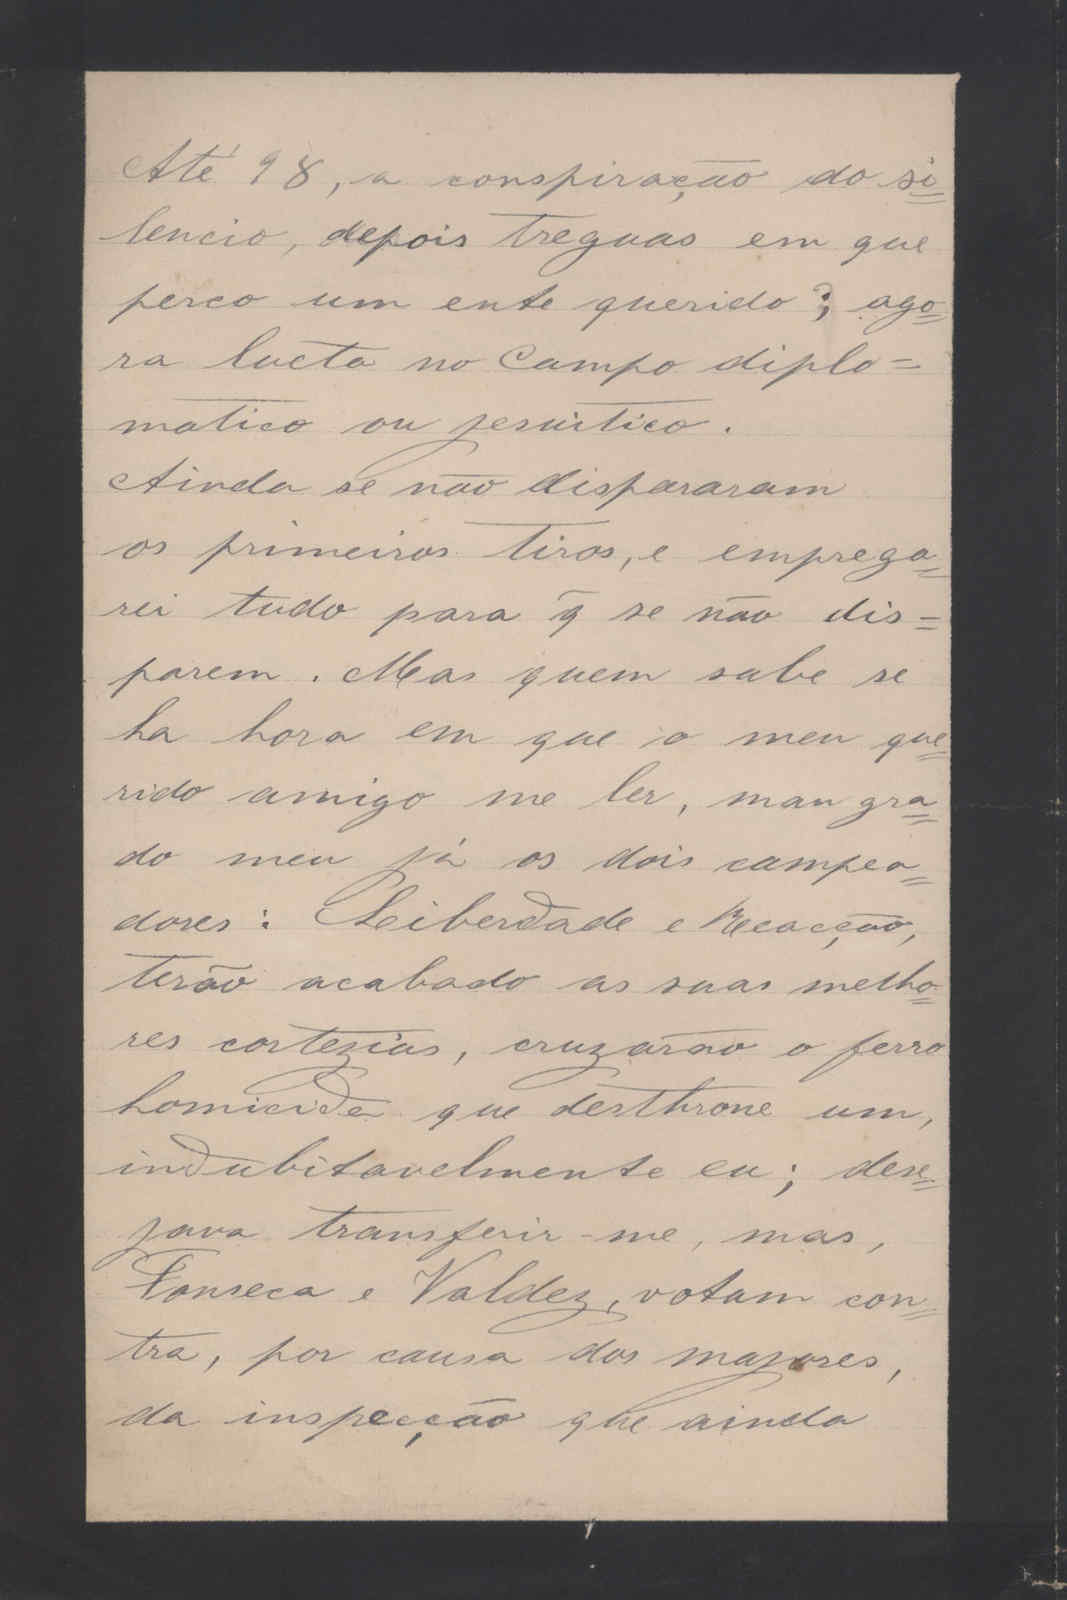 Até 98, a conspiração do si=
lencio, depois treguas em que
perco um ente querido; ago=
ra lucta no Campo diplo=
matico ou jesuitico.
Ainda se não dispararam
os primeiros tiros, e emprega=
rei tudo para q̃ se não dis=
parem. Mas quem sabe se
ha hora em que o meu que=
rido amigo me ler, mau gra=
do meu já os dois campea=
dores: Leiberdade e Reacção,
terão acabado as suas melho=
res cortezias, cruzarão o ferro
homicida que desthrone um,
indubitavelmente eu; dese=
java transferir-me, mas,
Fonseca e Valdez, votam con=
tra, por causa dos majores,
da inspecção que ainda